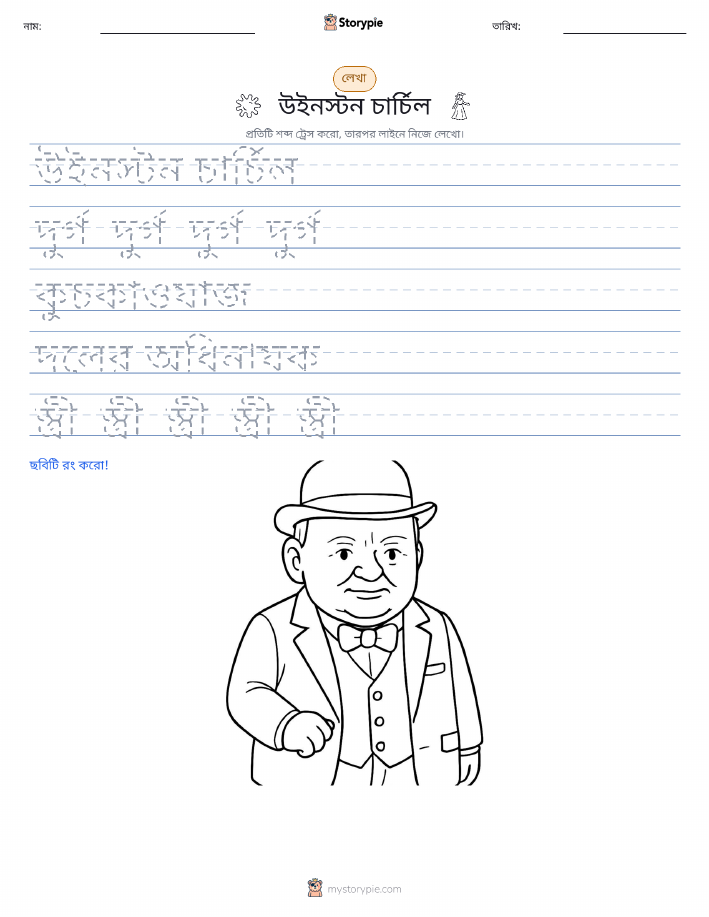 নাম:
Storypie
তারিখ:
লেখা
উইনস্টন চার্চিল
প্রতিটি শব্দ ট্রেস করো, তারপর লাইনে নিজে লেখো।
উইনস্টন চার্চিল
দুর্গ দুর্গ দুর্গ দুর্গ
কুচকাওয়াজ
দলের অধিনায়ক
স্ত্রী স্ত্রী স্ত্রী স্ত্রী স্ত্রী
ছবিটি রং করো!
mystorypie.com